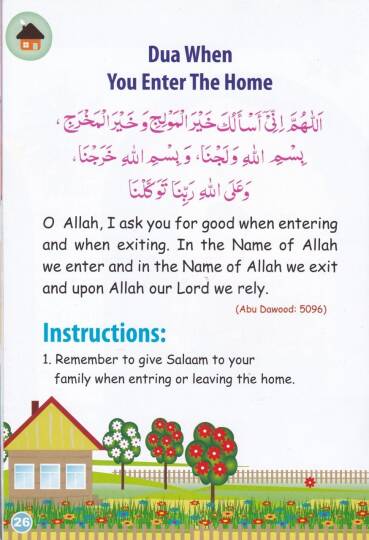 Dua When
You Enter The Home
اَللّٰهُمَّ اِنِّيْ أَسْأَلُكَ خَيْرَ الْمَوْلِجِ وَ خَيْرَ الْمَخْرَجِ ،
بِسْمِ اللهِ وَلَجْنَا، وَ بِسْمِ اللهِ خَرَجْنَا،
وَعَلَى اللهِ رَبِّنَا تَوَكَّلْنَا
O Allah, I ask you for good when entering
and when exiting. In the Name of Allah
we enter and in the Name of Allah we exit
and upon Allah our Lord we rely.
(Abu Dawood: 5096)
Instructions:
1. Remember to give Salaam to your
family when entring or leaving the home.
26